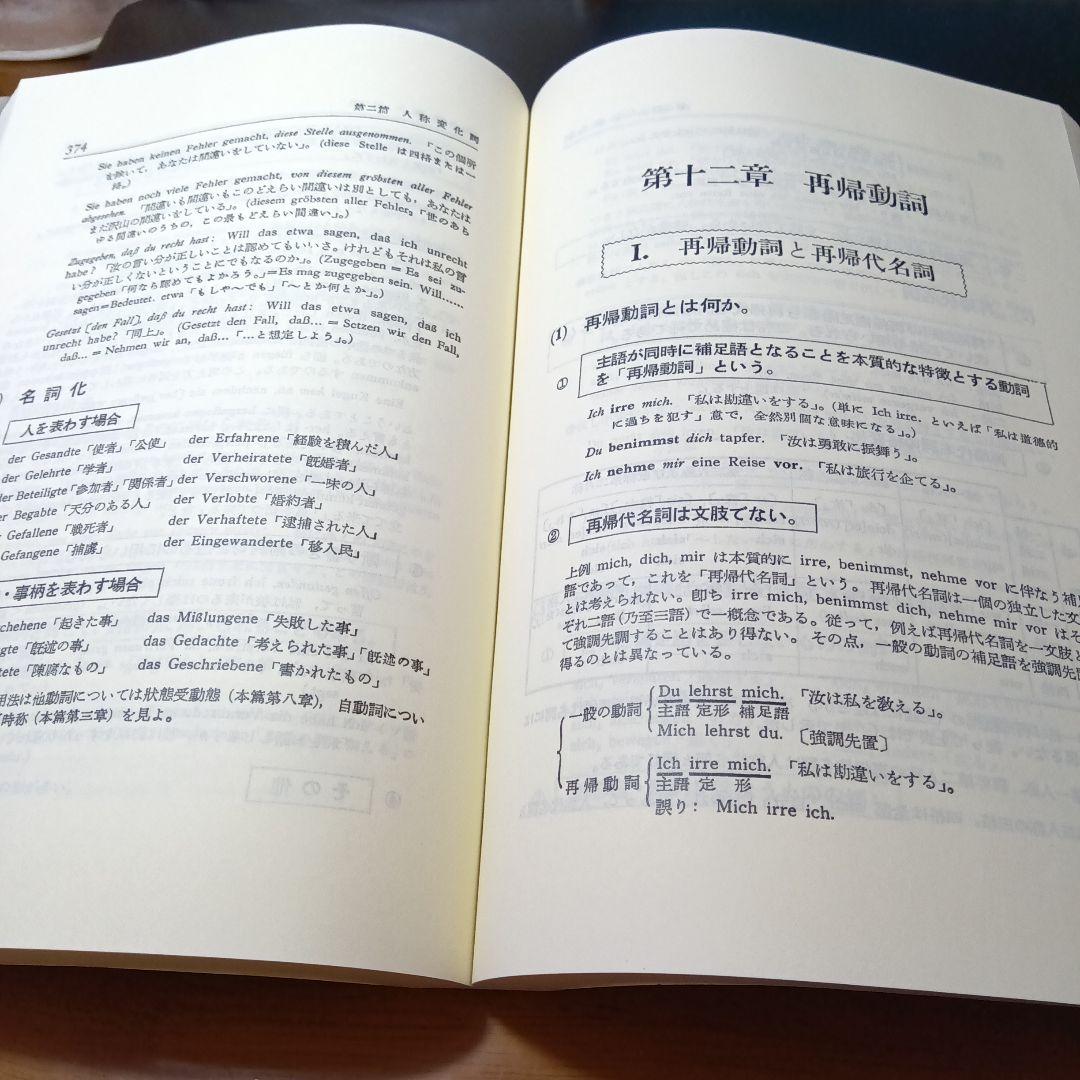 374
第二篇 人称変化詞
Sie haben keinen Fehler gemacht, diese Stelle ausgenommen. 「この個所
を除いて，あなたは間違いをしていない」。(diese Stelle は四格または一
格。)
Sie haben noch viele Fehler gemacht, von diesem gröbsten aller Fehler
abgesehen. 「間違いも間違いもこのどえらい間違いは別としても，あなたは
まだ沢山の間違いをしている」。(diesem gröbsten aller Fehler。「世のあら
ゆる間違いのうちの，この最もどえらい間違い」。)
Zugegeben, daß du recht hast: Will das etwa sagen, daß ich unrecht
habe? 「汝の言い分が正しいことは認めてもいいさ。けれどもそれは私の言
い分が正しくないということにでもなるのか」。(Zugegeben = Es sei zu-
gegeben「何なら認めてもよかろう。」=Es mag zugegeben sein. Will……
sagen=Bedeutet. etwa「もしや〜でも」「〜とか何とか」。)
Gesetzt [den Fall], daß du recht hast: Will das etwa sagen, daß ich
unrecht habe? 「同上」。(Gesetzt den Fall, daß... = Setzen wir den Fall,
daß... = Nehmen wir an, daß... 「…と想定しよう」。)
) 名詞化
人を表わす場合
der Gesandte「使者」「公使」 der Erfahrene「経験を積んだ人」
der Gelehrte「学者」 der Verheiratete「既婚者」
der Beteiligte「参加者」「関係者」 der Verschworene「一味の人」
er Begabte「天分のある人」 der Verlobte「婚約者」
Gefallene「戦死者」 der Verhaftete「逮捕された人」
Gefangene「捕虜」 der Eingewanderte「移入民」
・事柄を表わす場合
chehene「起きた事」 das Mißlungene「失敗した事」
gte「既述の事」 das Gedachte「考えられた事」「既述の事」
tete「陳腐なもの」 das Geschriebene「書かれたもの」
用法は他動詞については状態受動態 (本篇第八章)，自動詞につい
時称 (本篇第三章) を見よ。
第十二章 再帰動詞
I. 再帰動詞と再帰代名詞
(1) 再帰動詞とは何か。
① 主語が同時に補足語となることを本質的な特徴とする動詞
を「再帰動詞」という。
Ich irre mich. 「私は勘違いをする」。(単に Ich irre. といえば「私は道徳的
に過ちを犯す」意で，全然別個な意味になる」。)
Du benimmst dich tapfer. 「汝は勇敢に振舞う」。
Ich nehme mir eine Reise vor. 「私は旅行を企てる」。
② 再帰代名詞は文肢でない。
上例 mich, dich, mir は本質的に irre, benimmst, nehme vor に伴なう補足
語であって，これを「再帰代名詞」という。再帰代名詞は一個の独立した文
とは考えられない。即ち irre mich, benimmst dich, nehme mir vor はそ
ぞれ二語 (乃至三語) で一概念である。従って，例えば再帰代名詞を一文肢と
て強調先調することはあり得ない。その点，一般の動詞の補足語を強調先
得るのとは異なっている。
一般の動詞 Du lehrst mich. 「汝は私を教える」。
主語 定形 補足語
Mich lehrst du. 〔強調先置〕
再帰動詞 Ich irre mich. 「私は勘違いをする」。
主語 定 形
誤り： Mich irre ich.